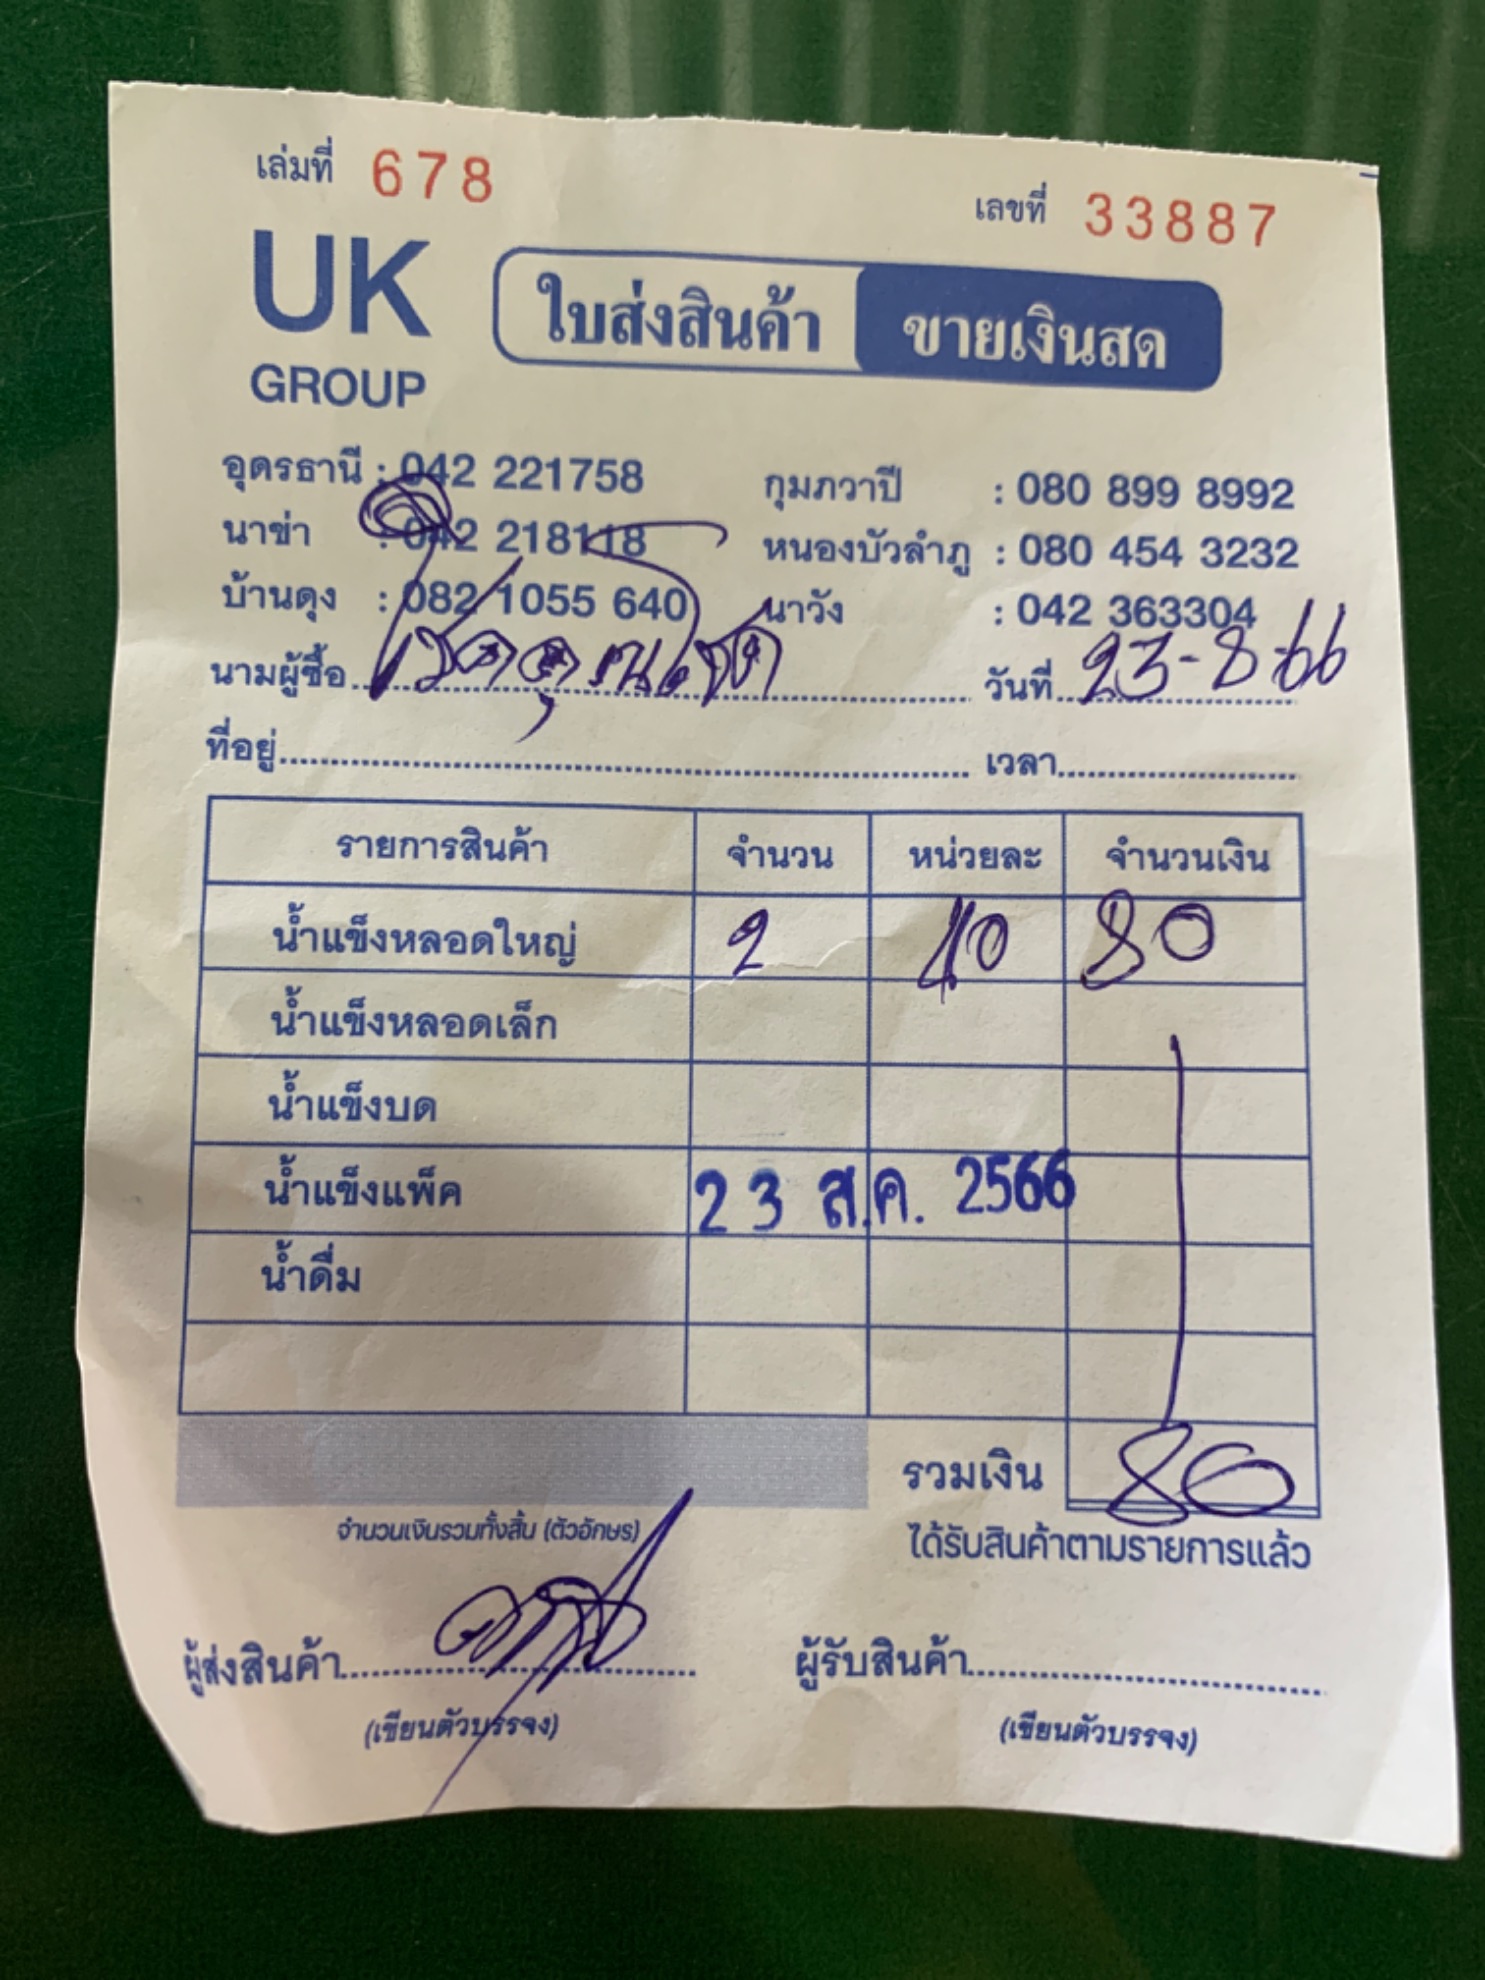 เล่มที่ 678
เลขที่ 33887
UK
GROUP
ใบส่งสินค้า ขายเงินสด
อุดรธานี : 042 221758 กุมภวาปี : 080 899 8992
นาข่า : 042 218118 หนองบัวลำภู : 080 454 3232
บ้านดุง : 082 1055 640 นาวัง : 042 363304
นามผู้ซื้อ วันที่ 23-8-66
ที่อยู่ เวลา
รายการสินค้า จำนวน หน่วยละ จำนวนเงิน
น้ำแข็งหลอดใหญ่ 2 40 80
น้ำแข็งหลอดเล็ก
น้ำแข็งบด
น้ำแข็งแพ็ค 23 ส.ค. 2566
น้ำดื่ม
รวมเงิน 80
จำนวนเงินรวมทั้งสิ้น (ตัวอักษร)
ได้รับสินค้าตามรายการแล้ว
ผู้ส่งสินค้า ผู้รับสินค้า
(เขียนตัวบรรจง) (เขียนตัวบรรจง)